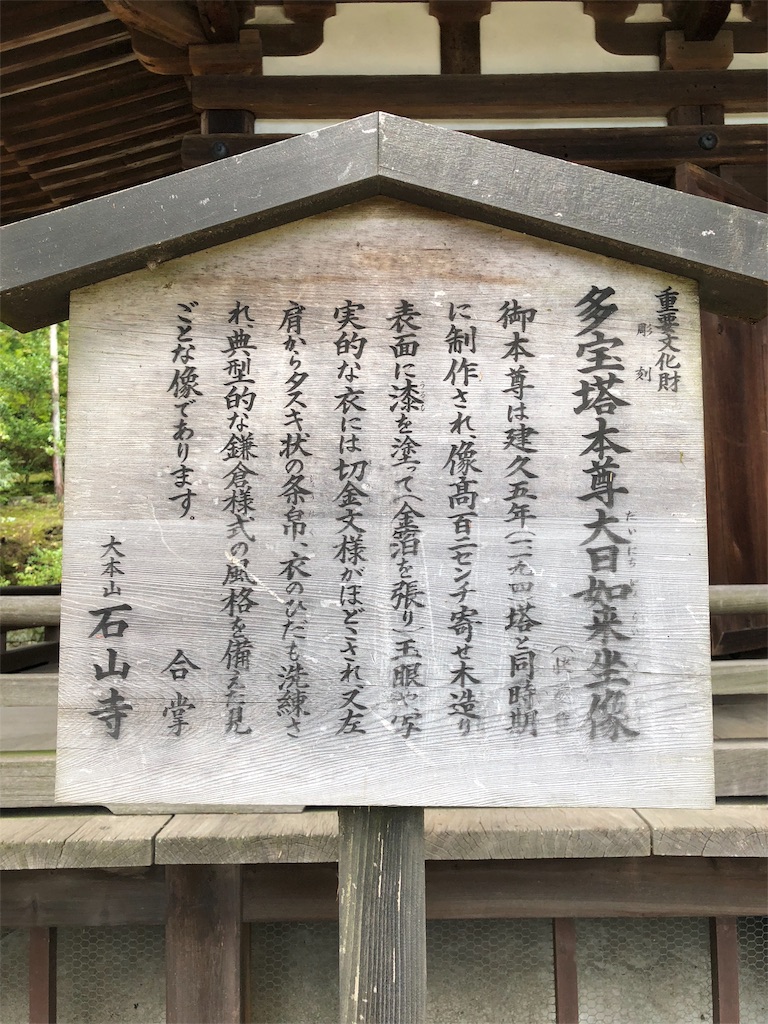 重要文化財
彫刻
多宝塔本尊大日如来坐像
御本尊は建久五年(一一九四)塔と同時期
に制作され、像髙百二センチ寄せ木造り
表面に漆を塗って(金箔を張り)玉眼や、写
実的な衣には切金文様がほどこされ又左
肩からタスキ状の条帛、衣のひだも洗練さ
れ、典型的な鎌倉様式の風格を備えた見
ごとな像であります。
合掌
大本山 石山寺